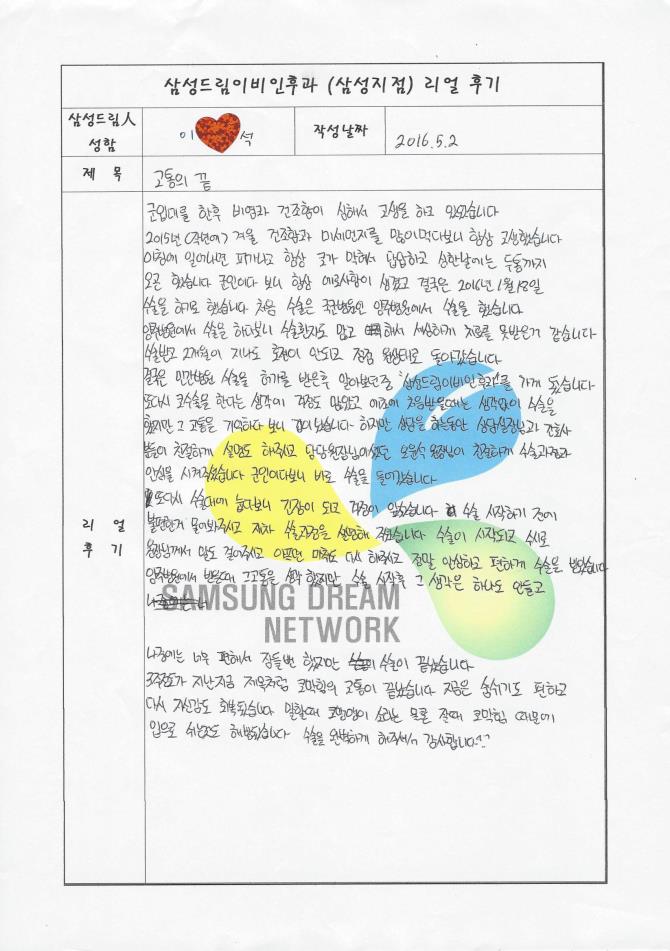 삼성드림이비인후과 (삼성지점) 리얼 후기
삼성드림人
성함
이 석
작성날짜
2016.5.2
제 목
고통의 끝
군입대를 한후 비염과 건조함이 심해서 고생을 하고 있었습니다
2015년 (작년에) 겨울 건조함과 미세먼지를 많이먹다보니 항상 고생했습니다
아침에 일어나면 피가나고 항상 코가 막혀서 답답하고 심한날에는 두통까지
오곤 했습니다 군인이다 보니 항상 애로사항이 생겼고 결국은 2016년 1월 13일
수술을 하기로 했습니다 처음 수술은 국군병원인 양주병원에서 수술을 했습니다
양주병원에서 수술을 하다보니 수술환자도 많고 해서 세심하게 치료를 못받은거 같습니다
수술받고 2개월이 지나도 호전이 안되고 점점 원상태로 돌아갔습니다
결국은 민간병원 수술을 허가를 받은후 알아보던중 "삼성드림이비인후과"를 가게 됐습니다
또다시 코수술을 한다는 생각에 걱정도 많았고 처음받을때는 생각없이 수술을
했지만 그 고통을 기억하다 보니 겁이났습니다 하지만 상담을 하는동안 상담실장님과 간호사
분들이 친절하게 설명도 해주시고 담당원장님이셨던 원장님이 친절하게 수술과정과
안심을 시켜주셨습니다 군인이다보니 바로 수술을 들어갔습니다
또다시 수술대에 눕다보니 긴장이 되고 걱정이 앞섰습니다 수술 시작하기 전에
불편한게 물어봐주시고 제차 수술과정을 설명해 주셨습니다 수술이 시작되고 수시로
원장님께서 말도 걸어주시고 아프면 마취도 다시 해주시고 정말 안심하고 편하게 수술을 받았습니다
양주병원에서 받을때 그고통을 생각 했지만 수술 시작후 그 생각은 하나도 안들고
SAMSUNG DREAM
NETWORK
리 얼
후 기
나중에는 너무 편해서 잠들뻔 했지만 수술이 끝났습니다
3주정도가 지난지금 제목처럼 코막힘의 고통이 끝났습니다 지금은 숨쉬기도 편하고
다시 자신감도 회복됐습니다 말할때 코맹맹이 소리는 물론 잘때 코막힘 때문에
입으로 쉬는것도 해방됐습니다 수술을 완벽하게 해주셔서 감사합니다^^